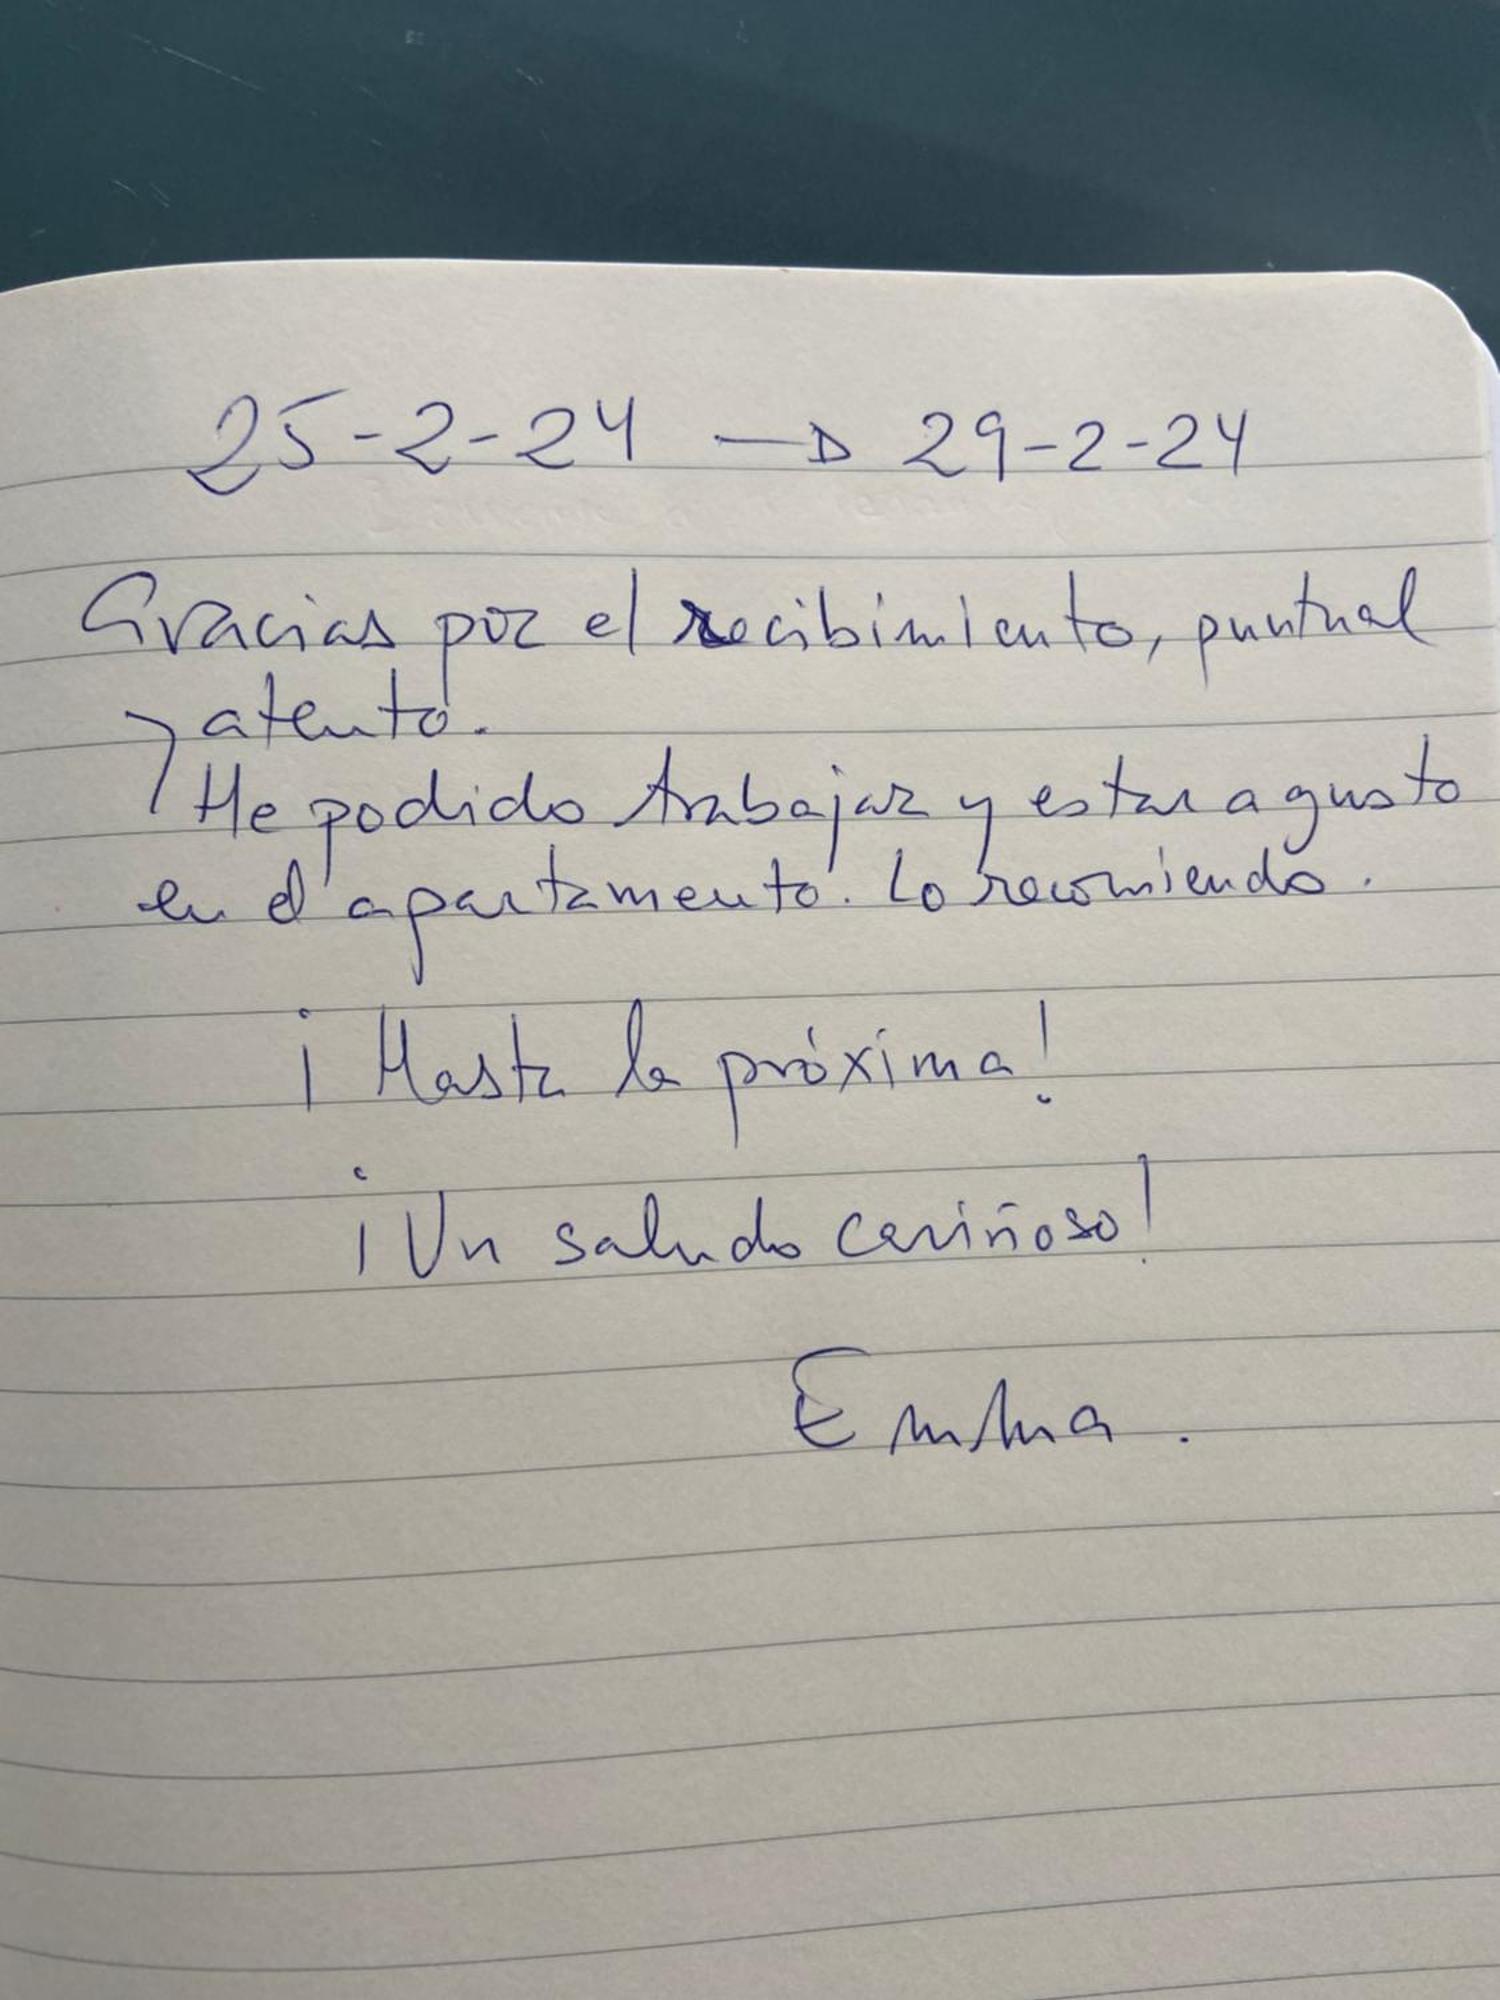 25-2-24 → 29-2-24
Gracias por el recibimiento, puntual
y atento.
He podido trabajar y estar a gusto
en el apartamento. Lo recomiendo.
¡Hasta la próxima!
¡Un saludo cariñoso!
Emma.